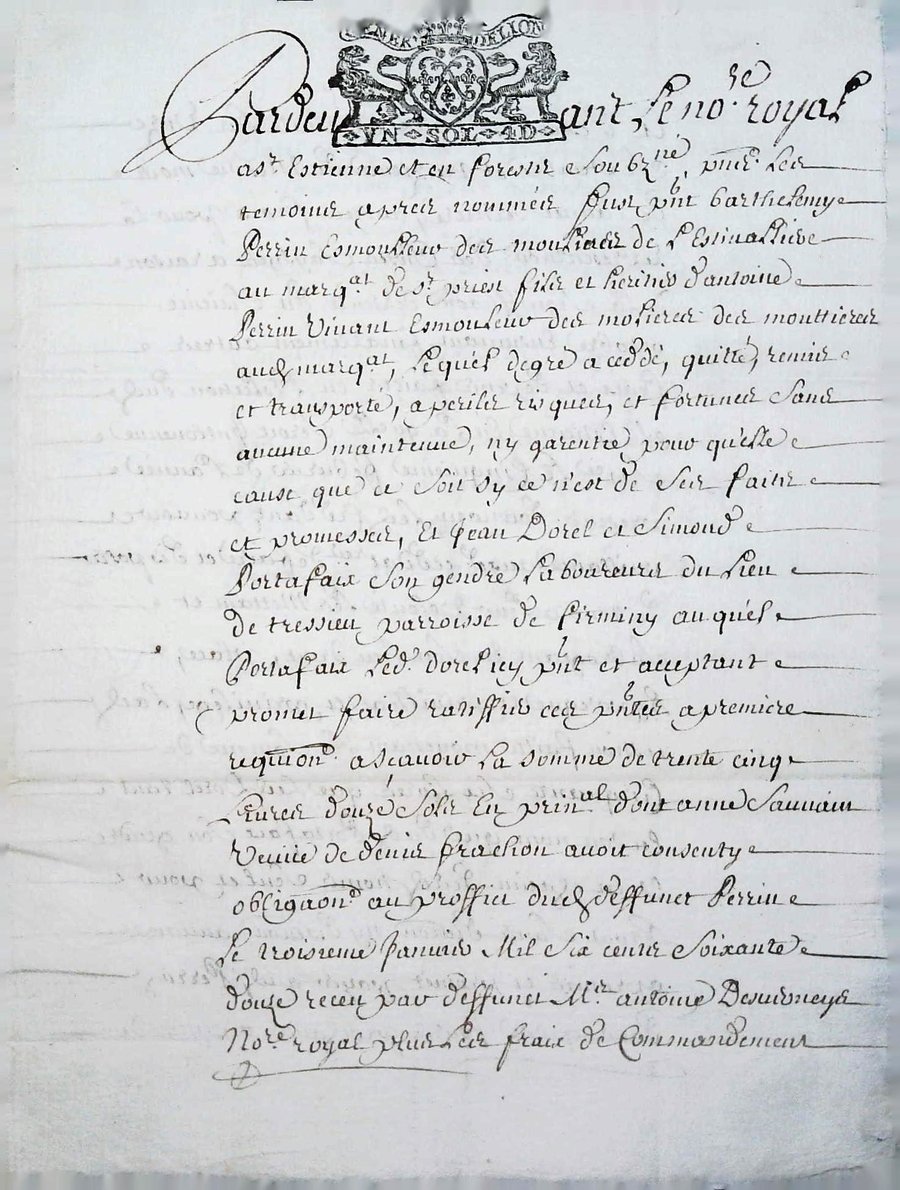 GENER· DE LION
VN · SOL · 4D
Pardeuant Le no.re royal
a St Estienne et en forestz Soubzné, pñs Les
temoins apres nommés fust pñt barthelemy
Perrin Esmolleur des moulieres de L'Estiualliere
au marq.at de St priest fils et heritier d'antoine
Perrin Viuant Esmouleur des molieres des mouttieres
aud marq.at, Lequel degre a ceddé, quitté, remis
et transporte, a perils risques, et fortunes Sans
aucune maintenue, ny garentie pour qu'elle
cause que ce Soit Sy ce n'est de Ses faits
et promesses, Et Jean Dorel et Simond
Portafaix Son gendre Laboureurs du Lieu
de tressieu parroisse de firminy auquel
Portafaix Led. dorel icy pñt et acceptant
promet faire rattiffier ces pñtes a premiere
requiōn. ascauoir La somme de trente cinq
Liures douze Sols En prin.al dont anne Sauuain
Veuue de denis frachon auoit consenty
obligaōn. au proffict dud deffunct Perrin
Le troisieme Januier Mil Six cents Soixante
douze receu par deffunct M.re antoine Desuerneys
No.re royal plus Les frais de Commandement